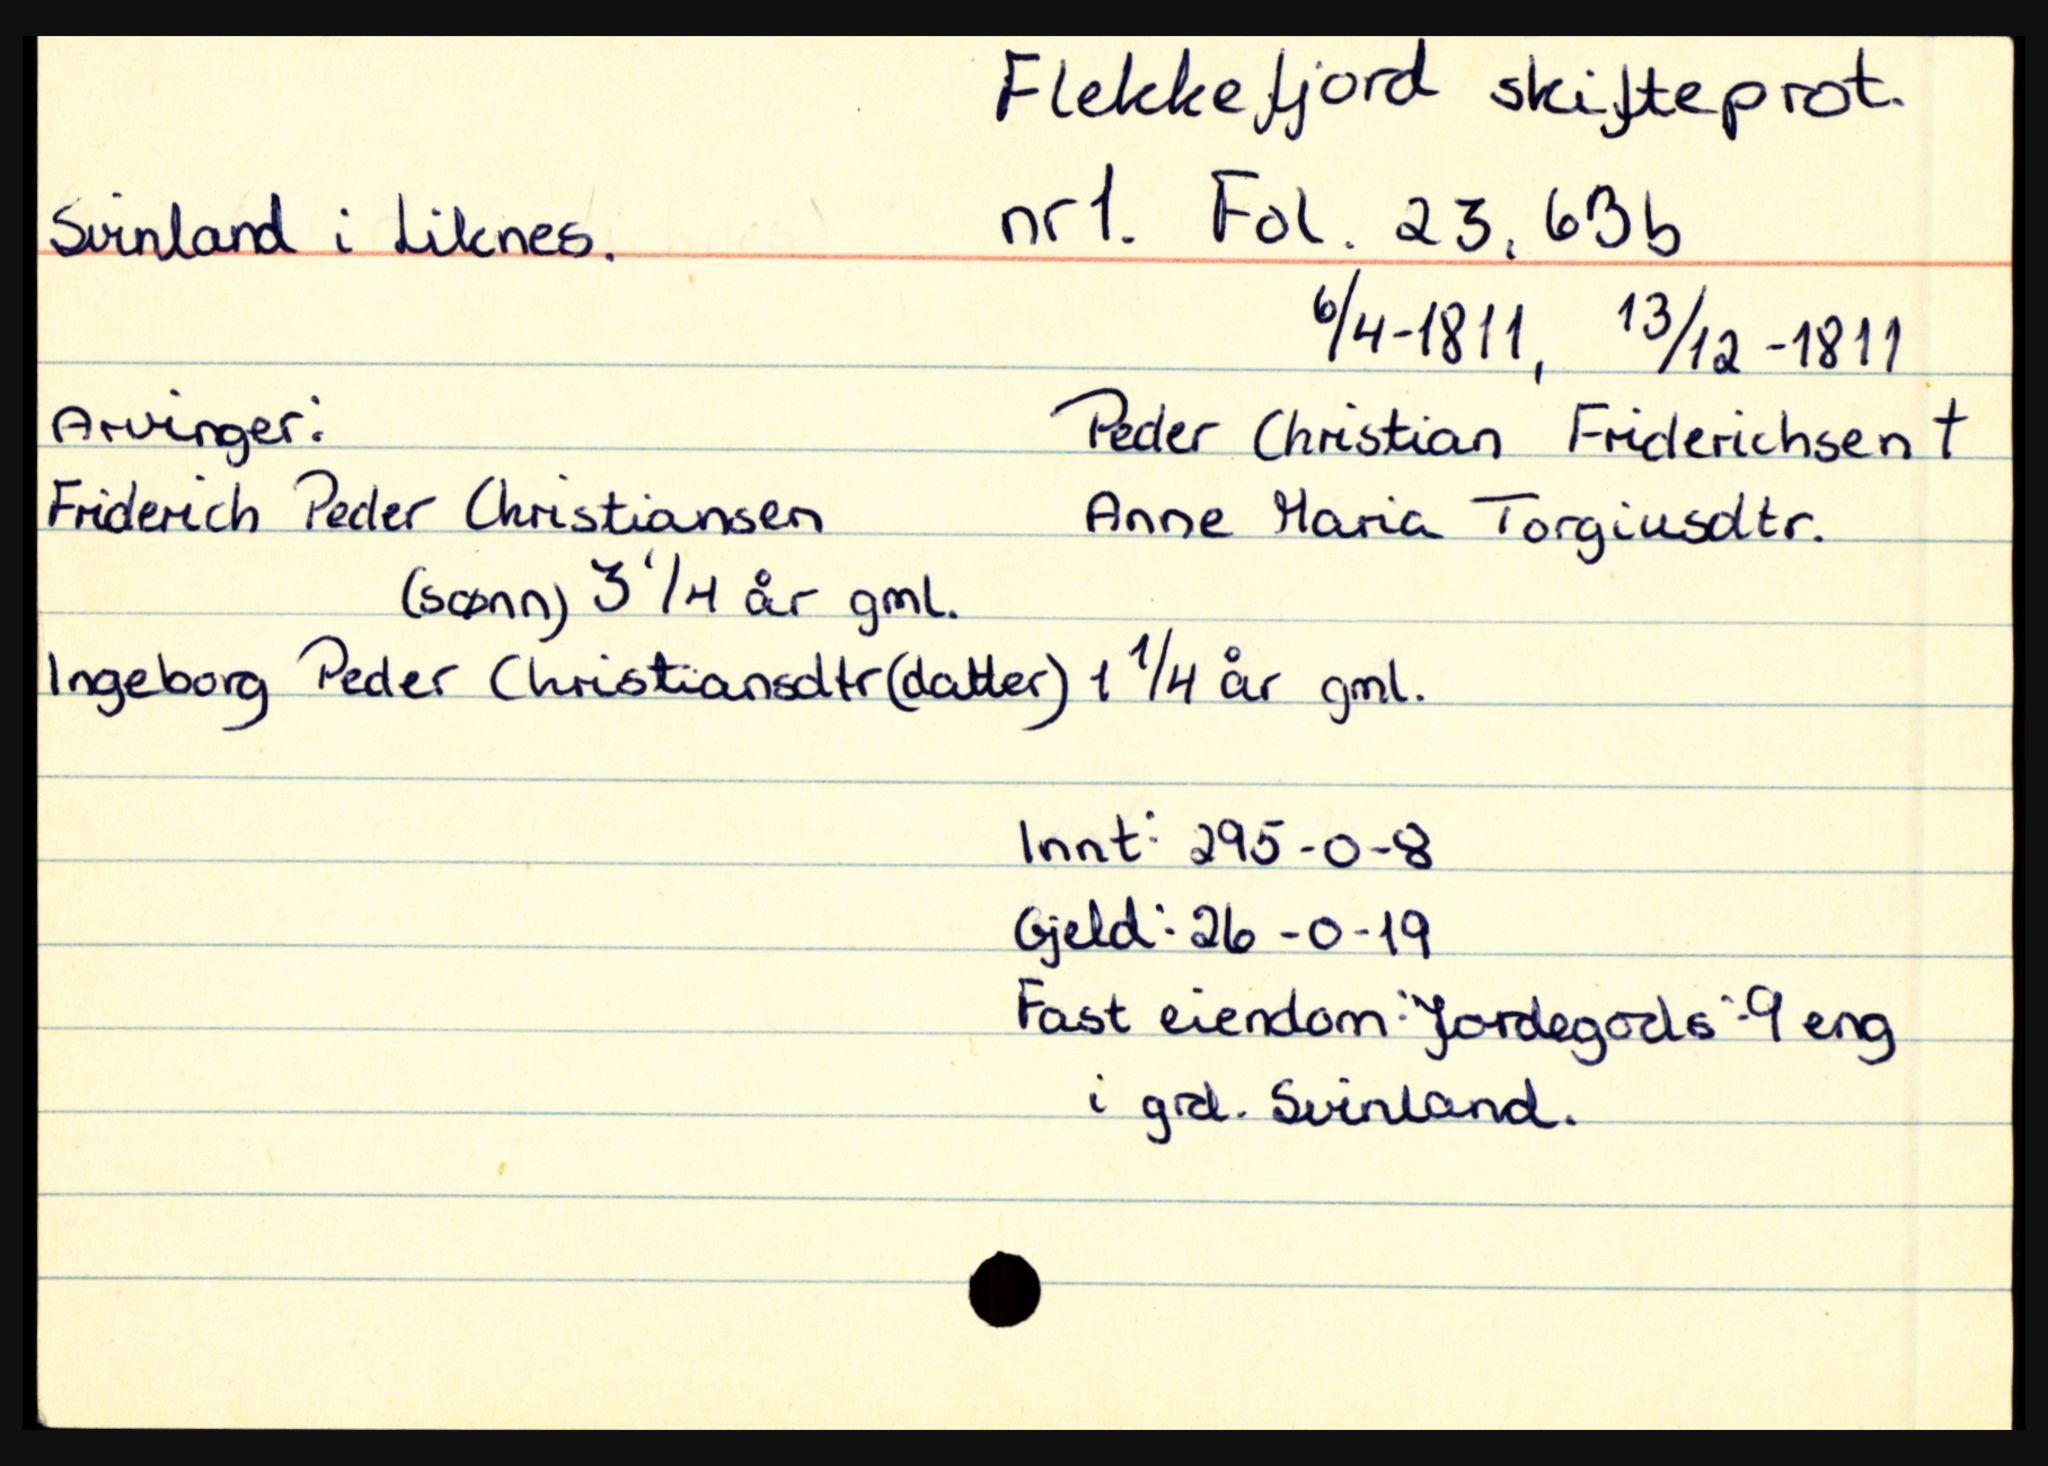 Flekkefjord skifteprot.
Svinland i Liknes.
nr 1. Fol. 23, 63b
6/4-1811, 13/12-1811
Arvinger:
Peder Christian Friderichsen †
Friderich Peder Christiansen
Anne Maria Torgiusdtr.
(sønn) 3 1/4 år gml.
Ingeborg Peder Christiansdtr (datter) 1 1/4 år gml.
Innt: 295-0-8
Gjeld: 26-0-19
Fast eiendom: Jordegods: 9 eng
i grd. Svinland.